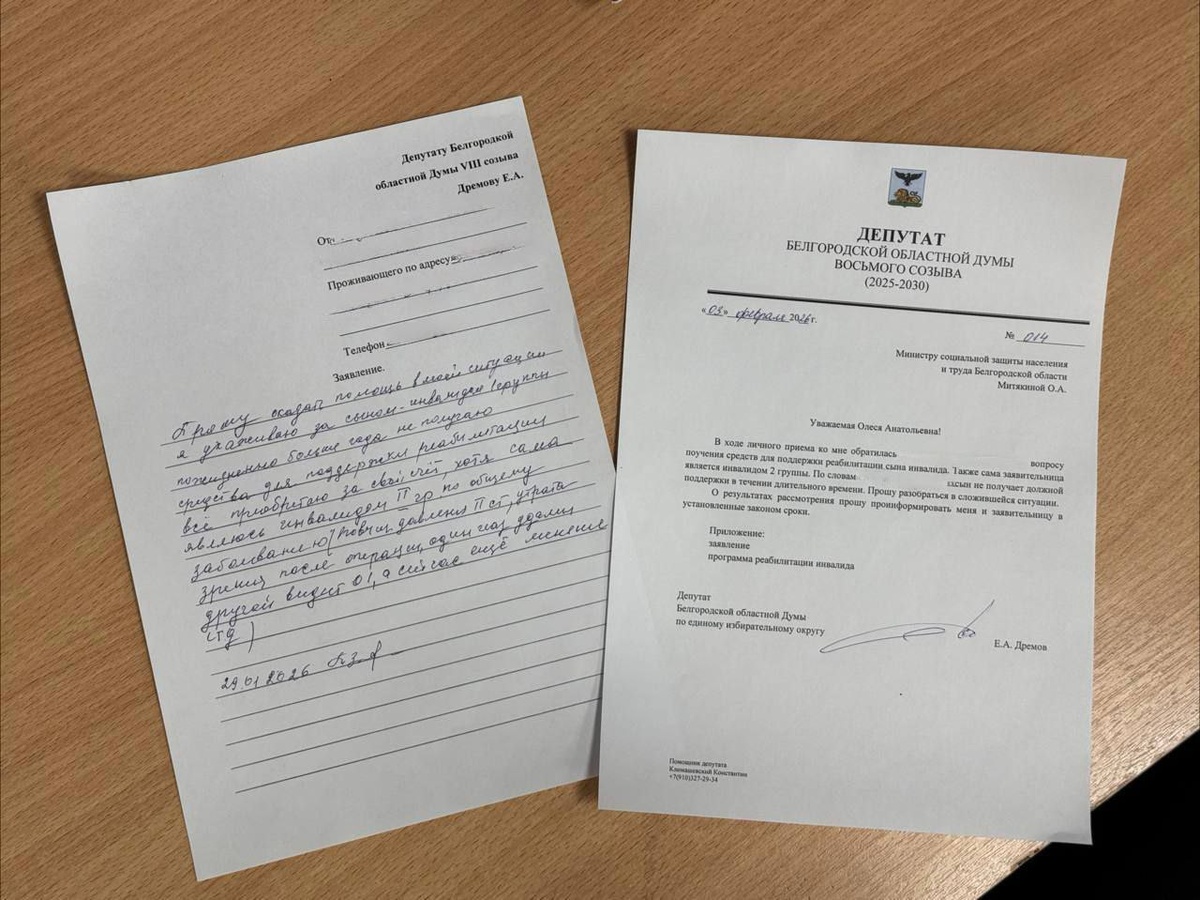 Депутату Белгородкой
областной Думы VIII созыва
Дремову Е.А.
От
Проживающего по адресу
Телефон
Заявление.
Прошу оказать помощь в моей ситуации
я ухаживаю за сыном-инвалидом I группы
пожизненно больше года не получаю
средства для поддержки реабилитации
всё приобретаю за свой счёт хотя сама
являюсь инвалидом II гр по общему
заболеванию
давления II ст, утрата
зрения после операции, один глаз удалён
другой видит 01, а сейчас ещё меньше
и т д )
29.01.2026
ДЕПУТАТ
БЕЛГОРОДСКОЙ ОБЛАСТНОЙ ДУМЫ
ВОСЬМОГО СОЗЫВА
(2025-2030)
«03» февраля 2026 г.
№ 014
Министру социальной защиты населения
и труда Белгородской области
Митякиной О.А.
Уважаемая Олеся Анатольевна!
В ходе личного приема ко мне обратилась вопросу
поучения средств для поддержки реабилитации сына инвалида. Также сама заявительница
является инвалидом 2 группы. По словам сын не получает должной
поддержки в течении длительного времени. Прошу разобраться в сложившейся ситуации.
О результатах рассмотрения прошу проинформировать меня и заявительницу в
установленные законом сроки.
Приложение:
заявление
программа реабилитации инвалида
Депутат
Белгородской областной Думы
по единому избирательному округу
Е.А. Дремов
Помощник депутата
Климашевский Константин
+7(910)327-29-34